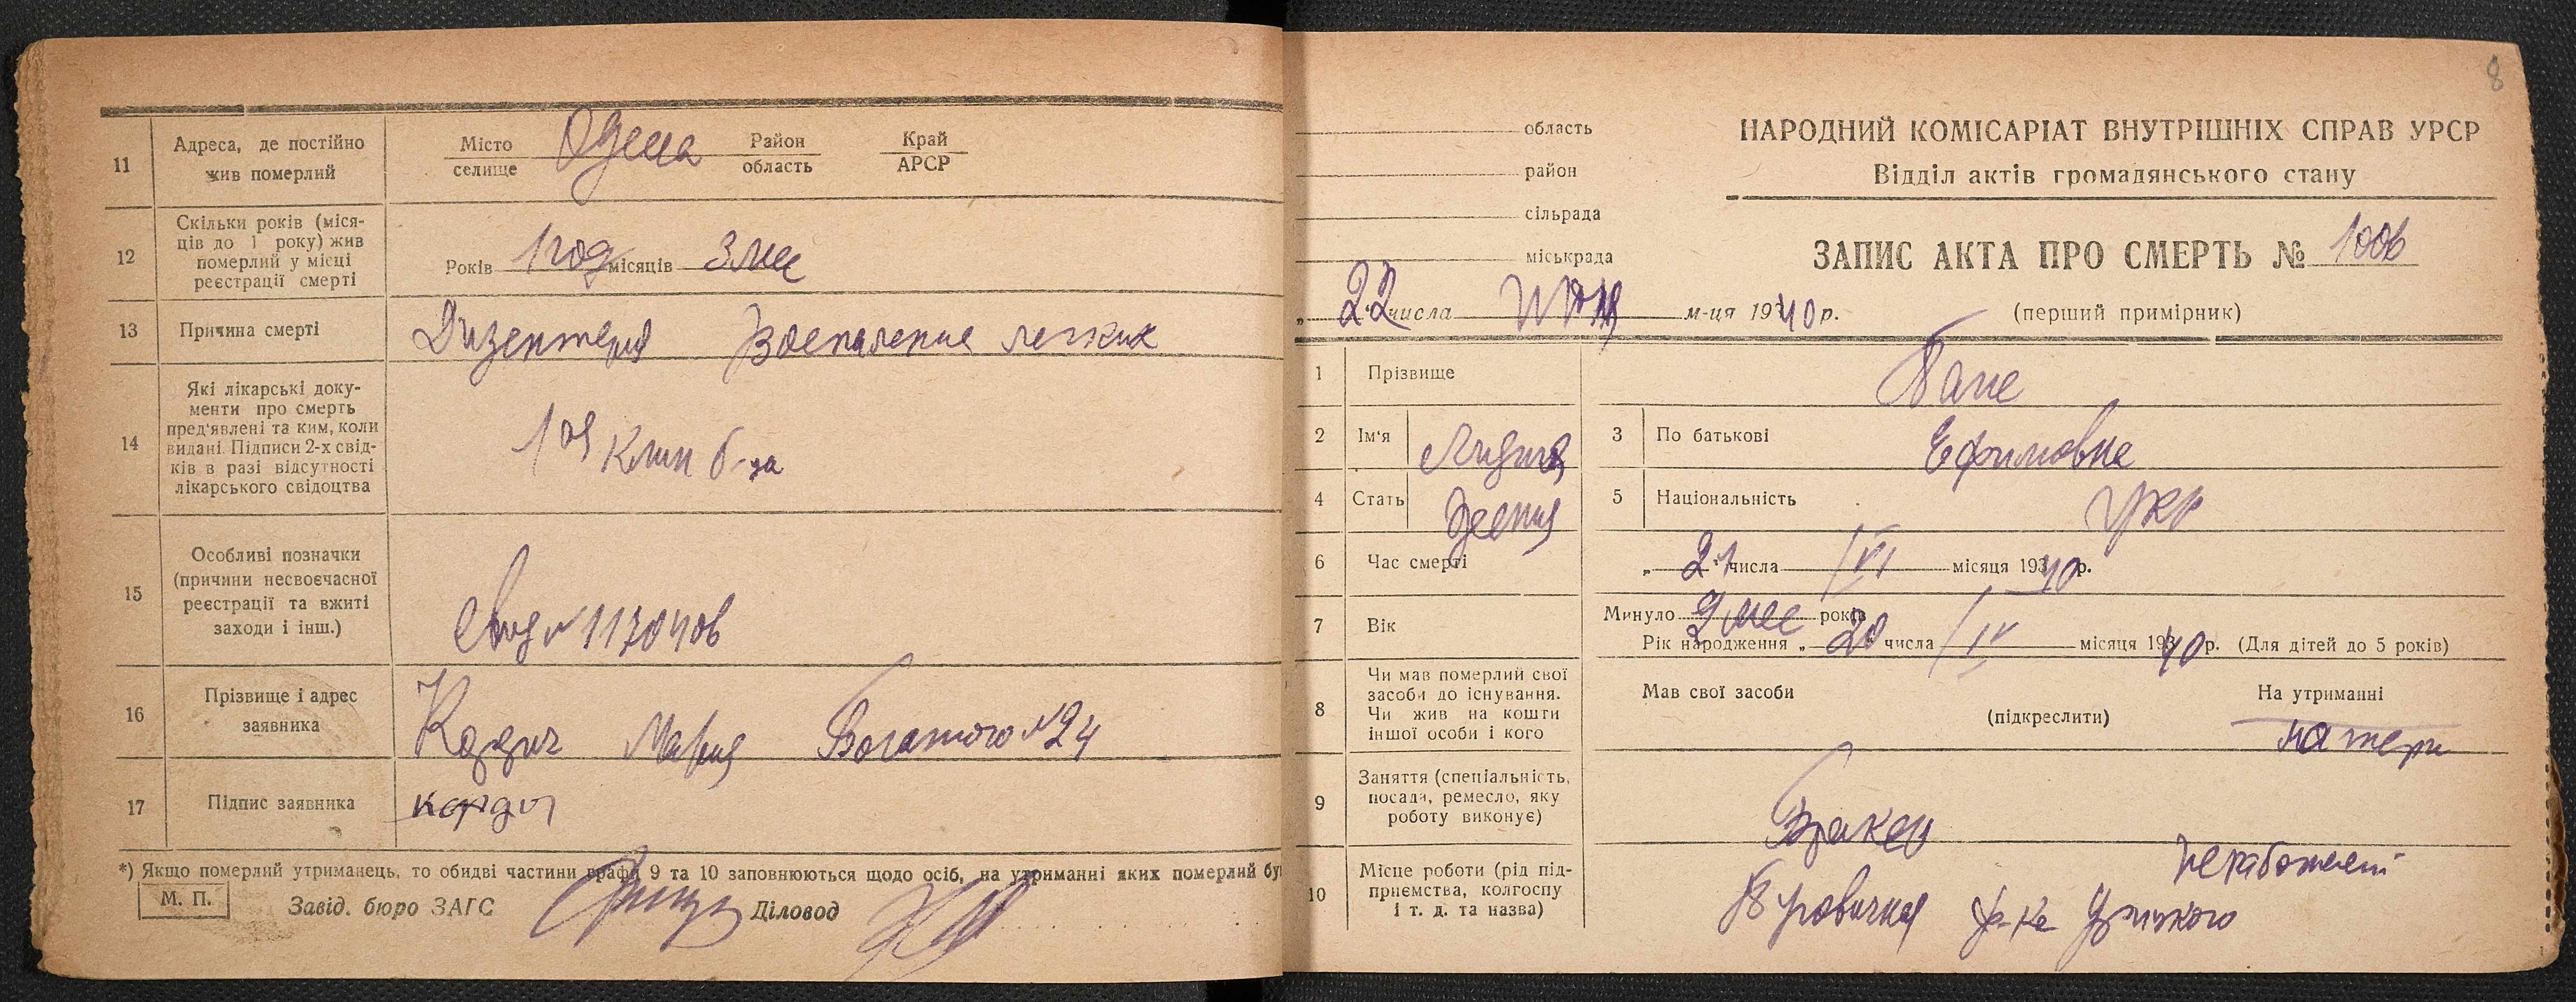 11
Адреса, де постійно
жив померлий
Місто
селище
Одеса
Район
область
Край
АРСР
12
Скільки років (міся-
ців до 1 року) жив
померлий у місці
реєстрації смерті
Років 1 год місяців 3 мес
13
Причина смерті
Дизентерия Воспаление легких
14
Які лікарські доку-
менти про смерть
пред'явлені та ким, коли
видані. Підписи 2-х свід-
ків в разі відсутності
лікарського свідоцтва
1ой Клин б-ца
15
Особливі позначки
(причини несвоєчасної
реєстрації та вжиті
заходи і інш.)
16
Прізвище і адрес
заявника
Мария Богатого №24
17
Підпис заявника
*) Якщо померлий утриманець, то обидві частини графи 9 та 10 заповнюються щодо осіб, на утриманні яких померлий бу
М. П.
Завід. бюро ЗАГС
Діловод
8
область
район
сільрада
міськрада
НАРОДНИЙ КОМІСАРІАТ ВНУТРІШНІХ СПРАВ УРСР
Відділ актів громадянського стану
ЗАПИС АКТА ПРО СМЕРТЬ № 1006
„ 22 числа м-ця 1940 р.
(перший примірник)
1
Прізвище
2
Ім'я
Лидия
3
По батькові
Ефимовна
4
Стать
5
Національність
Укр
6
Час смерті
„ 21 числа VI місяця 1940 р.
7
Вік
Минуло мес років
Рік народження „ 20 числа IV місяця 1940 р. (Для дітей до 5 років)
8
Чи мав померлий свої
засоби до існування.
Чи жив на кошти
іншої особи і кого
Мав свої засоби
(підкреслити)
На утриманні
матери
9
Заняття (спеціальність,
посада, ремесло, яку
роботу виконує)
10
Місце роботи (рід під-
приємства, колгоспу
і т. д. та назва)
ф-ка Урицкого